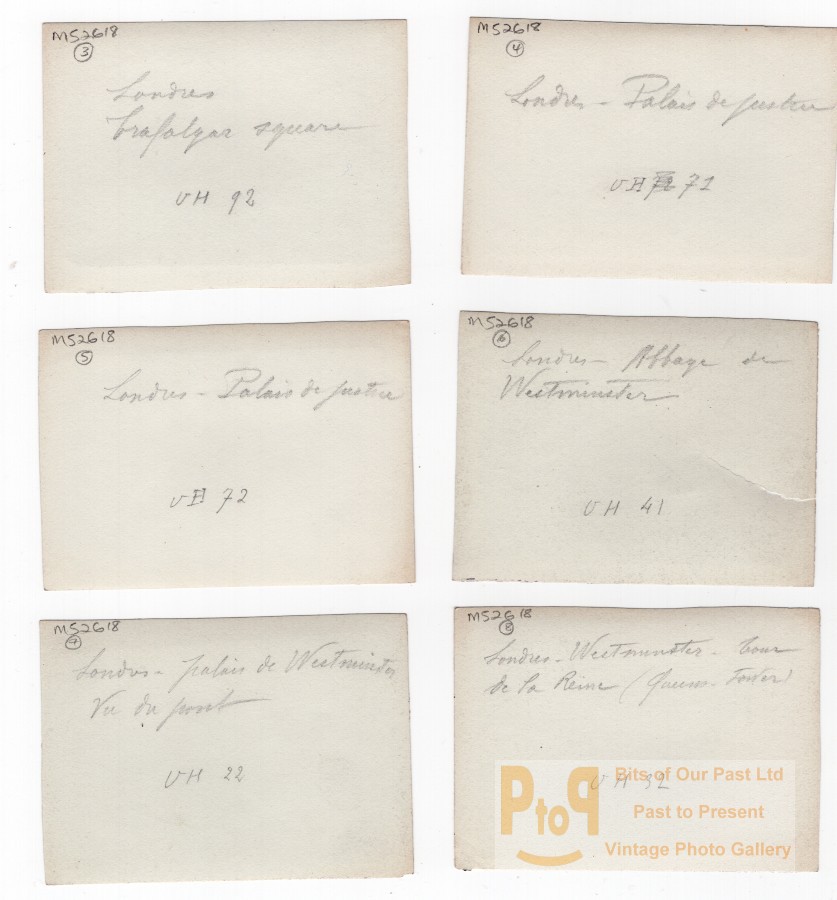 MS2618
3
Londres
Trafalgar square
VH 92
MS2618
4
Londres - Palais de justice
VH 71
MS2618
5
Londres - Palais de justice
VH 72
MS2618
6
Londres - Abbaye de
Westminster
VH 41
MS2618
7
Londres - palais de Westminster
Vu du pont
VH 22
MS2618
8
Londres - Westminster - Tour
de la Reine (Queens-Tower)
VH 32
PtoP
Bits of Our Past Ltd
Past to Present
Vintage Photo Gallery